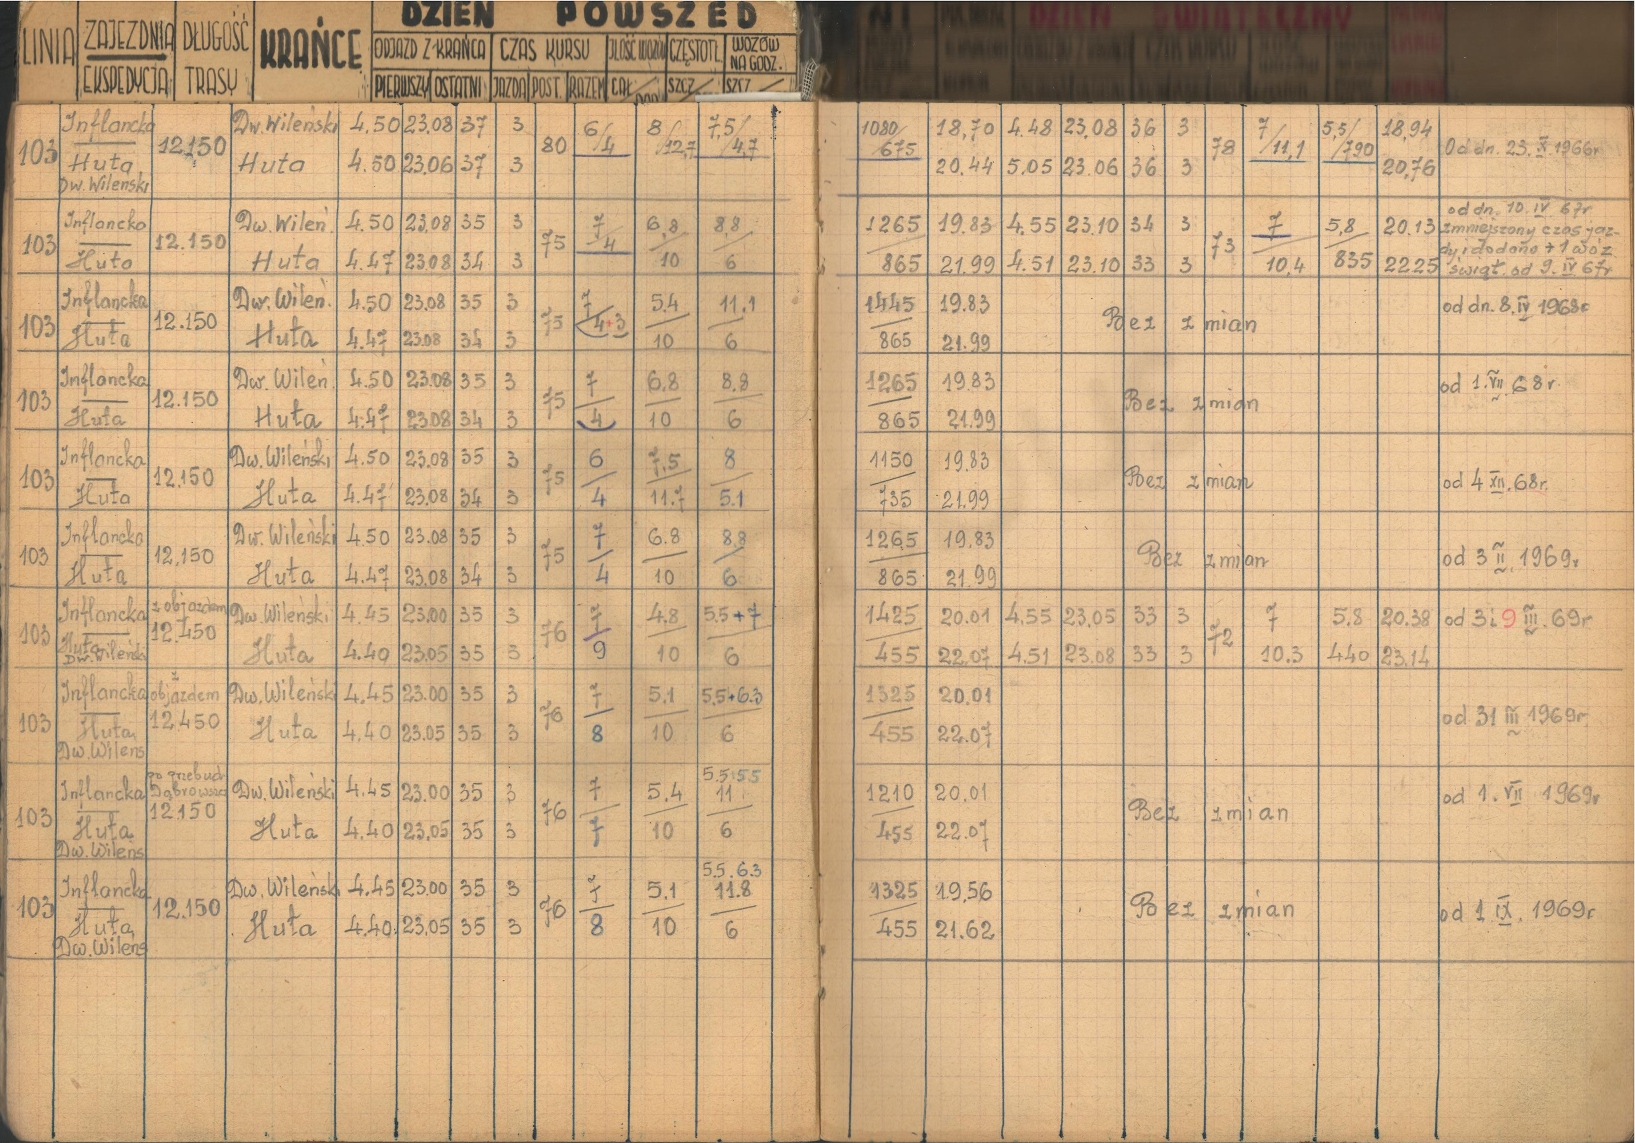 DZIEŃ POWSZED
LINIA ZAJEZDNIA DŁUGOŚĆ KRAŃCE ODJAZD Z KRAŃCA CZAS KURSU ILOŚĆ WOZÓW CZĘSTOTL. WOZÓW NA GODZ.
EKSPEDYCJA TRASY PIERWSZY OSTATNI JAZDA POST. RAZEM CAŁ/DOD SZCZ SZCZ
DZIEŃ ŚWIĄTECZNY
103 Inflancka 12.150 Dw. Wileński 4.50 23.08 37 3 80 6/4 8/12,7 7,5/4,7 1080/675 18,70 4.48 23,08 36 3 78 7/11,1 5,5/790 18,94 Od dn. 23.X.1966r
Huta Huta 4.50 23.06 37 3 20.44 5,05 23.06 36 3 20,76
Dw. Wileński
103 Inflancka 12.150 Dw. Wileń. 4.50 23.08 35 3 75 7/4 6,8 8,8 1265 19.83 4.55 23.10 34 3 73 7 5,8 20.13 od dn. 10.IV 67r
zmniejszony czas jaz-
dy i dodano +1 wóz
Huta Huta 4.47 23.08 34 3 10 6 865 21.99 4.51 23.10 33 3 10,4 835 22.25 świąt. od 9.IV 67r
103 Inflancka 12.150 Dw. Wileń. 4.50 23.08 35 3 75 7 5.4 11.1 1445 19.83 Bez zmian od dn. 8.IV 1968r
Huta Huta 4.47 23.08 34 3 4+3 10 6 865 21.99
103 Inflancka 12.150 Dw. Wileń. 4.50 23.08 35 3 75 7 6.8 8,8 1265 19.83 Bez zmian od 1.VII.68r.
Huta Huta 4.47 23.08 34 3 4 10 6 865 21.99
103 Inflancka 12.150 Dw. Wileński 4.50 23.08 35 3 75 6 7,5 8 1150 19.83 Bez zmian od 4 XII.68r.
Huta Huta 4.47 23.08 34 3 4 11.7 5.1 735 21.99
103 Inflancka 12.150 Dw. Wileński 4.50 23.08 35 3 75 7 6.8 8,8 1265 19.83 Bez zmian od 3 II. 1969r.
Huta Huta 4.47 23.08 34 3 4 10 6 865 21.99
103 Inflancka z objazdem 12.450 Dw. Wileński 4.45 23.00 35 3 76 7 4.8 5.5+7 1425 20.01 4.55 23.05 33 3 72 7 5.8 20.38 od 3 i 9 III.69r
Huta Huta 4.40 23.05 35 3 9 10 6 455 22.07 4.51 23.08 33 3 10.3 440 23.14
Dw. Wileński
103 Inflancka z objazdem 12.450 Dw. Wileński 4.45 23.00 35 3 76 7 5.1 5.5+6.3 1325 20.01 od 31 III 1969r
Huta Huta 4.40 23.05 35 3 8 10 6 455 22.07
Dw. Wileńs
103 Inflancka po przebud. Dąbrowszcz 12.150 Dw. Wileński 4.45 23.00 35 3 76 7 5.4 5.5+5.5 11 1210 20.01 Bez zmian od 1.VII 1969r
Huta Huta 4.40 23.05 35 3 7 10 6 455 22.07
Dw. Wileńs
103 Inflancka 12.150 Dw. Wileński 4.45 23.00 35 3 76 7 5.1 5.5.6.3 11.8 1325 19,56 Bez zmian od 1 IX. 1969r
Huta Huta 4.40 23.05 35 3 8 10 6 455 21.62
Dw. Wileńs